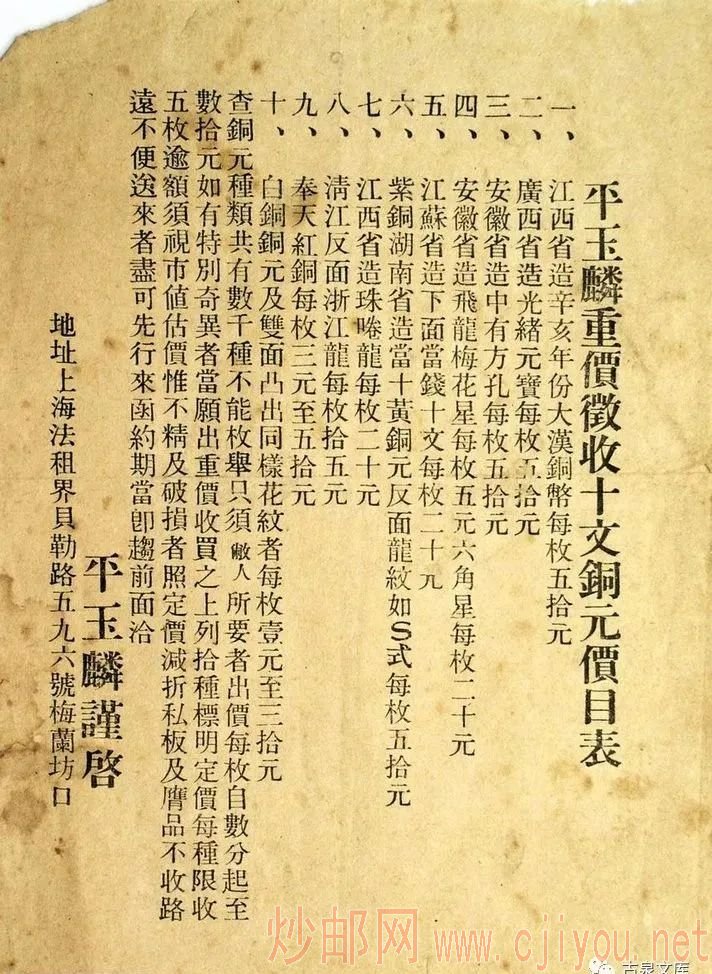 平玉麟重價徵收十文銅元價目表
一、江西省造辛亥年份大漢銅幣每枚五拾元
二、廣西省造光緒元寶每枚五拾元
三、安徽省造中有方孔每枚五拾元
四、安徽省造飛龍梅花星每枚五元六角星每枚二十元
五、江蘇省造下面當錢十文每枚二十元
六、紫銅湖南省造當十黃銅元反面龍紋如S式每枚五拾元
七、江西省造珠啳龍每枚二十元
八、清江反面浙江龍每枚拾五元
九、奉天紅銅每枚三元至五拾元
十、白銅銅元及雙面凸出同樣花紋者每枚壹元至三拾元
查銅元種類共有數千種不能枚舉只須敝人所要者出價每枚自數分起至
數拾元如有特別奇異者當願出重價收買之上列拾種標明定價每種限收
五枚逾額須視市值估價惟不精及破損者照定價減折私板及贋品不收路
遠不便送來者盡可先行來函約期當卽趨前面洽
平玉麟謹啓
地址上海法租界貝勒路五九六號梅蘭坊口
炒邮网www.cjiyou.net
古泉文库